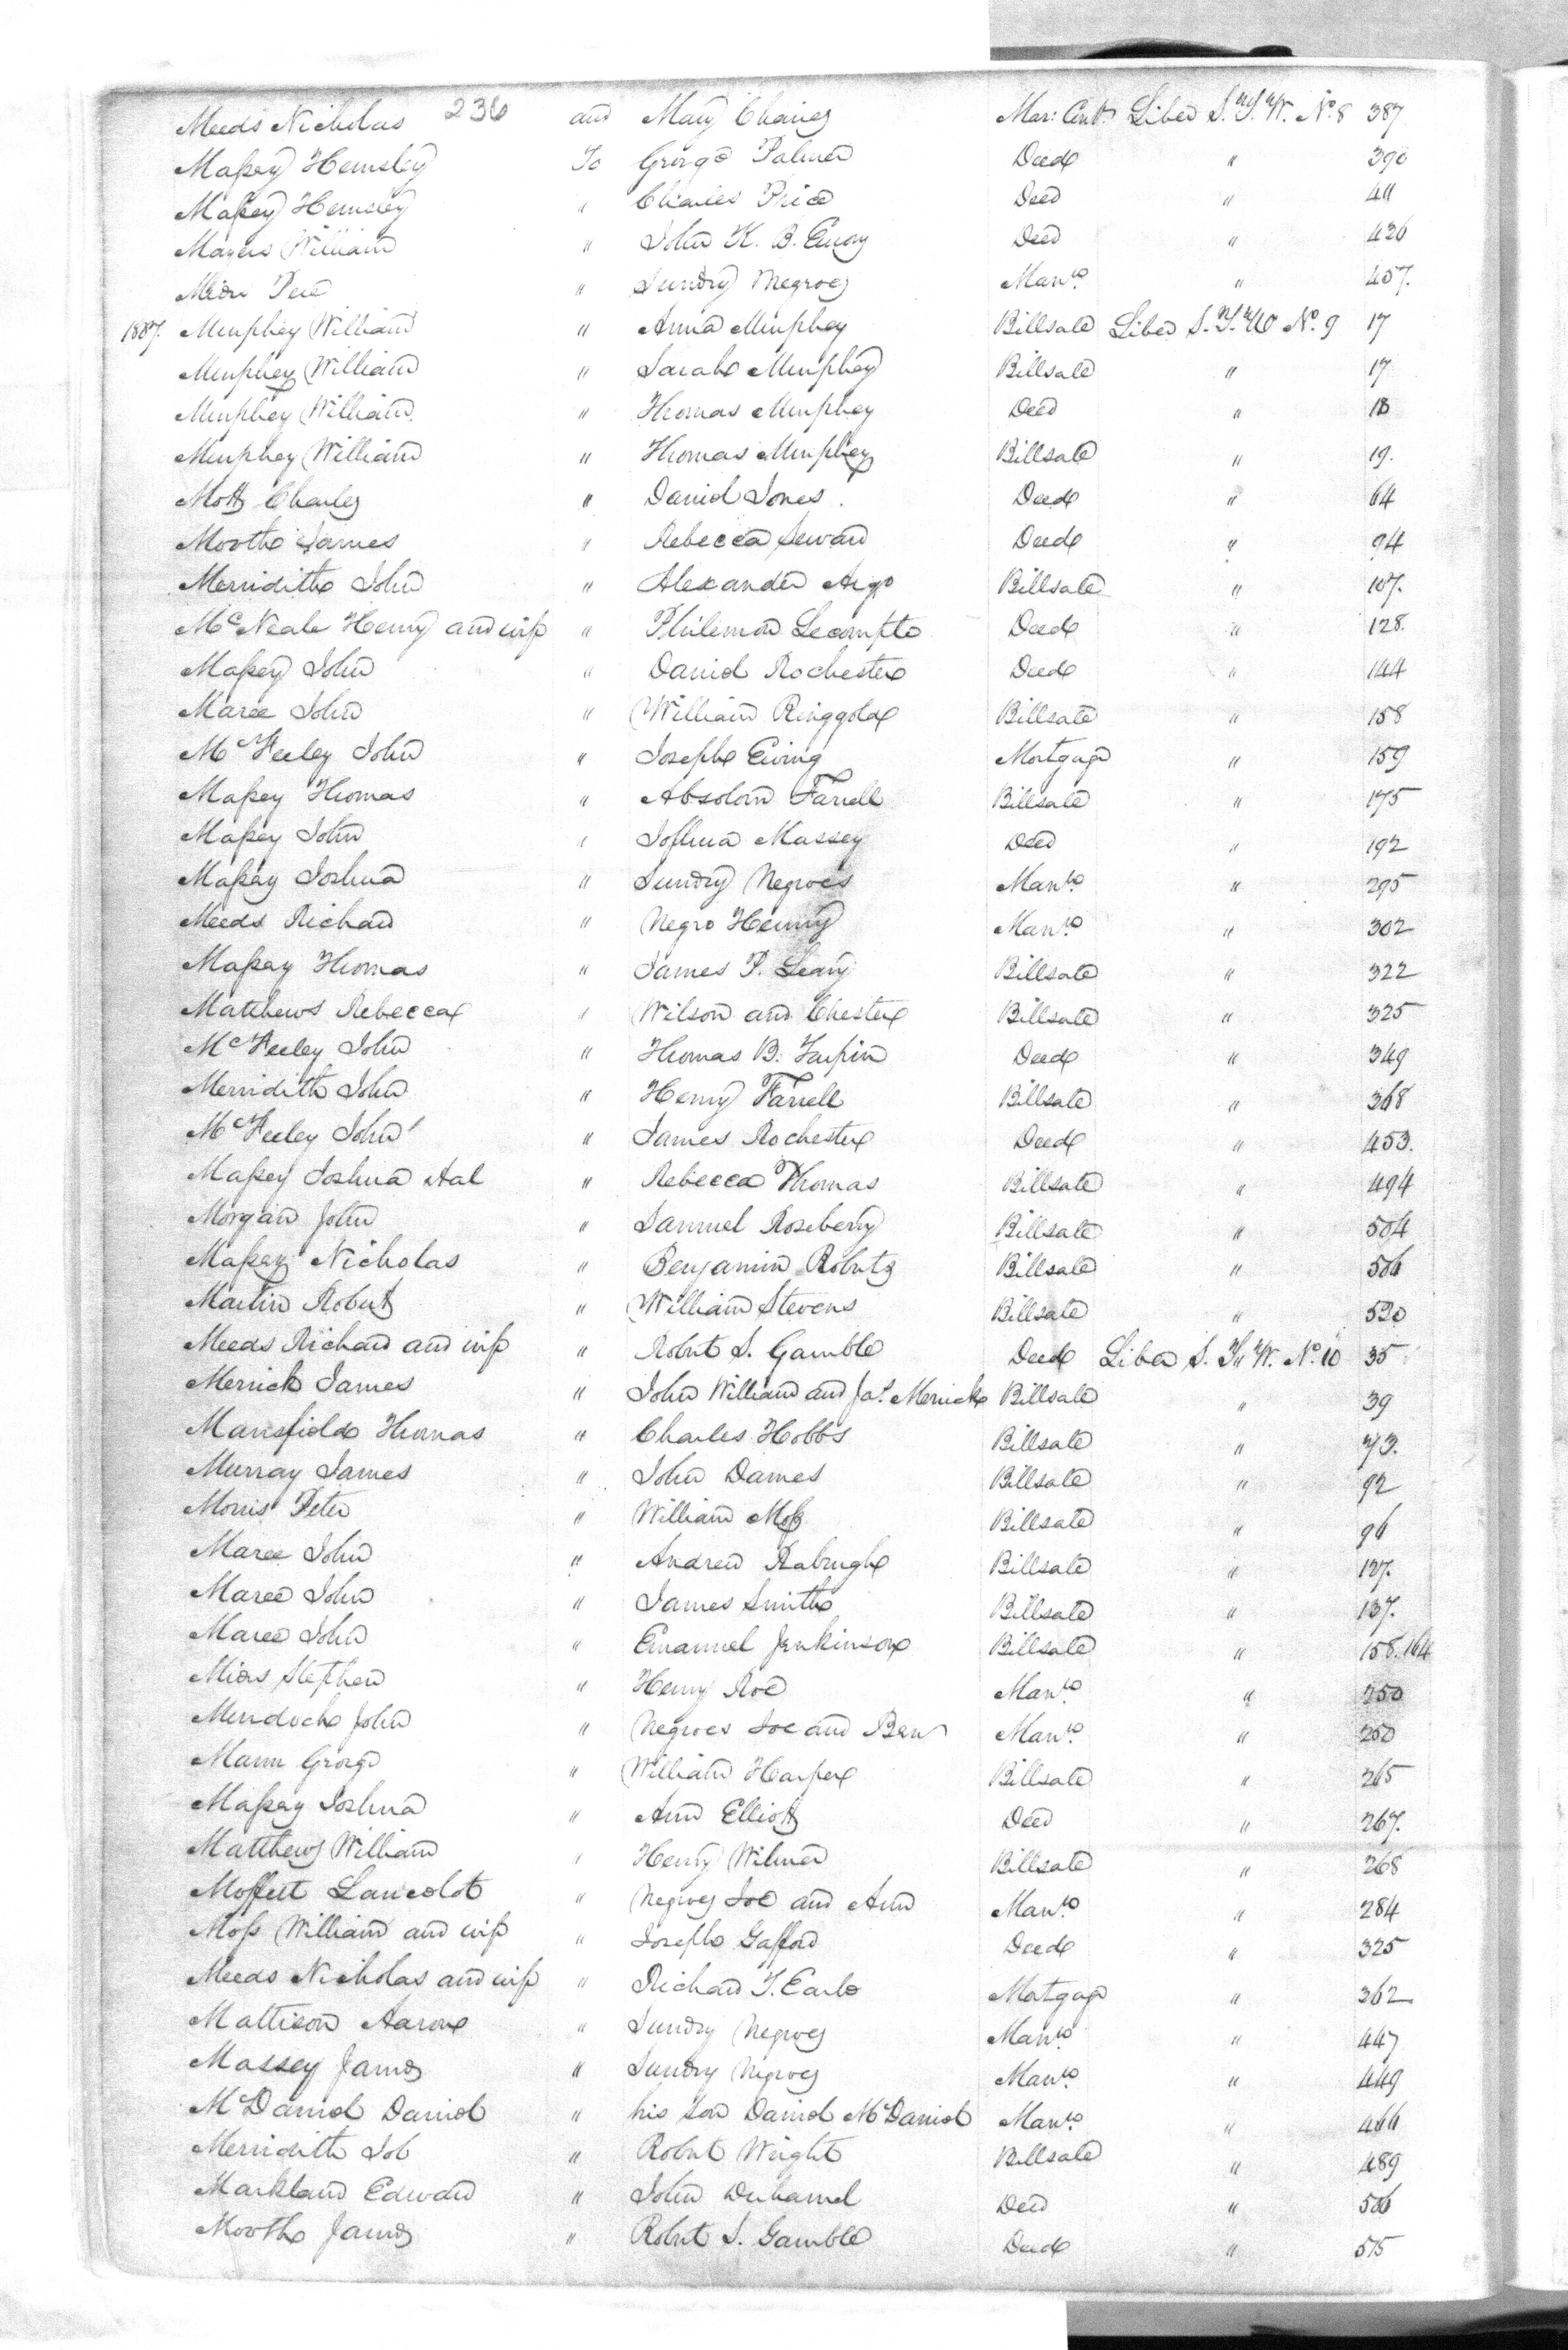 236
Meeds Nicholas and Mary Chaires Mar: Cont. Liber S.T.W. No. 8 387
Massey Hemsley To George Palmer Deed " 390
Massey Hemsley " Charles Price Deed " 411
Mayers William " John K. B. Emory Deed " 426
" Sundry Negroes Manto. " 457.
Murphey William " Anna Murphey Billsale Liber S.T.W. No. 9 17
Murphey William " Sarah Murphey Billsale " 17
Murphey William " Thomas Murphey Deed " 18
Murphey William " Thomas Murphey Billsale " 19.
Mott Charles " Daniel Jones Deed " 64
Mooth James " Rebecca Seward Deed " 94
Merridith John " Alexander Argo Billsale " 107.
McNeale Henry and wife " Philemon Lecompte Deed " 128.
Massey John " Daniel Rochester Deed " 144
Maree John " William Ringgold Billsale " 158
McFeeley John " Joseph Ewing Mortgage " 159
Massey Thomas " Absolom Farrell Billsale " 175
Massey John " Joshua Massey Deed " 192
Massey Joshua " Sundry Negroes Manto. " 295
Meeds Richard " Negro Henny Manto. " 302
Massey Thomas " James P. Leary Billsale " 322
Matthews Rebecca " Wilson and Chester Billsale " 325
McFeeley John " Thomas B. Turpin Deed " 349
Merridith John " Henry Farrell Billsale " 368
McFeeley John " James Rochester Deed " 453.
Massey Joshua &al " Rebecca Thomas Billsale " 494
Morgan John " Samuel Roseberry Billsale " 504
Massey Nicholas " Benjamin Roberts Billsale " 506
Martin Robert " William Stevens Billsale " 520
Meeds Richard and wife " Robert S. Gamble Deed Liber S.T.W. No. 10 35
Merrick James " John William and Jas. Merrick Billsale " 39
Mansfield Thomas " Charles Hobbs Billsale " 73.
Murray James " John Dames Billsale " 92
Morris Peter " William Moss Billsale " 96
Maree John " Andrew Billsale " 127.
Maree John " James Smith Billsale " 137.
Maree John " Emanuel Jenkinson Billsale " 158.164
Stephen " Henry Roe Manto. " 250
Murdoch John " Negroes Joe and Ben Manto. " 250
Mann George " William Harper Billsale " 265
Massey Joshua " Ann Elliott Deed " 267.
Matthews William " Henry Wilmer Billsale " 268
Moffett Lancelot " Negroes Joe and Ann Manto. " 284
Moss William and wife " Joseph Gafford Deed " 325
Meeds Nicholas and wife " Richard T. Earle Mortgage " 362
Mattison Aaron " Sundry Negroes Manto. " 447
Massey James " Sundry Negroes Manto. " 449
McDaniel Daniel " his son Daniel McDaniel Manto. " 466
Merridith Job " Robert Wright Billsale " 489
Markland Edward " John Duhamel Deed " 506
Mooth James " Robert S. Gamble Deed " 515